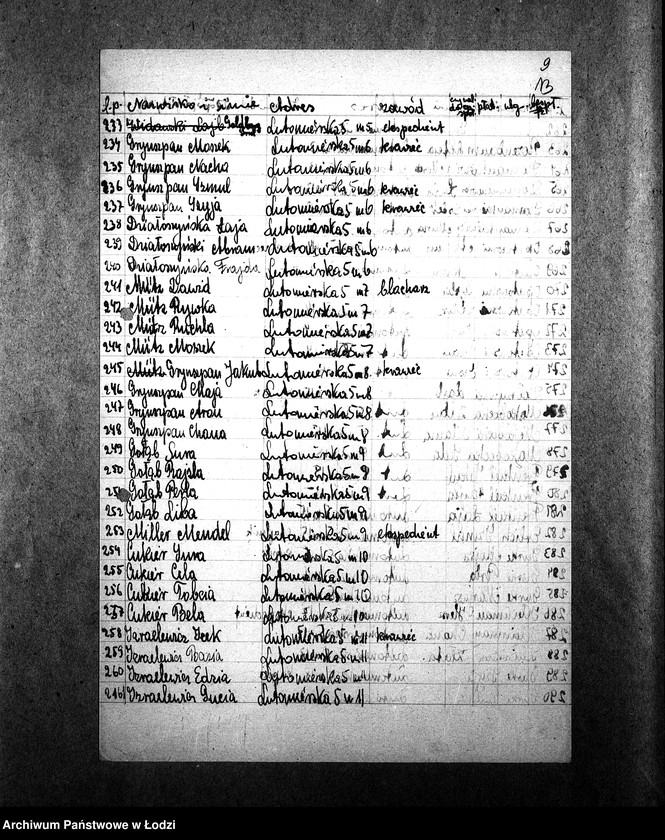 9
13
Lp. Nazwisko i imię Adres zawód
233 Lutomierska 5 m 5 ekspedient
234 Grynszpan Moszek Lutomierska 5 m 6 krawiec
235 Grynszpan Nacha Lutomierska 5 m 6
236 Grynszpan Lutomierska 5 m 6 krawiec
237 Grynszpan Lutomierska 5 m 6 krawiec
238 Działoszyńska Łaja Lutomierska 5 m 6
239 Działoszyński Abram Lutomierska 5 m 6
240 Działoszyńska Frajda Lutomierska 5 m 6
241 Mütz Dawid Lutomierska 5 m 7 blacharz
242 Mütz Rywka Lutomierska 5 m 7
243 Mütz Ruchla Lutomierska 5 m 7
244 Mütz Moszek Lutomierska 5 m 7
245 Grynszpan Jakub Lutomierska 5 m 8 krawiec
246 Grynszpan Chaja Lutomierska 5 m 8
247 Grynszpan Aron Lutomierska 5 m 8
248 Grynszpan Chana Lutomierska 5 m 8
249 Gołąb Sura Lutomierska 5 m 9
250 Gołąb Rajzla Lutomierska 5 m 9
Gołąb Perla Lutomierska 5 m 9
252 Gołąb Liba Lutomierska 5 m 9
253 Miller Mendel Lutomierska 5 m 9 ekspedient
254 Cukier Lutomierska 5 m 10
255 Cukier Cela Lutomierska 5 m 10
256 Cukier Tobcia Lutomierska 5 m 10
257 Cukier Bela Lutomierska 5 m 10
258 Izraelewicz Icek Lutomierska 5 m 11 krawiec
259 Izraelewicz Basia Lutomierska 5 m 11
260 Izraelewicz Edzia Lutomierska 5 m 11
261 Izraelewicz Lutomierska 5 m 11
Archiwum Państwowe w Łodzi